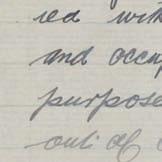 red with
and occup
purpose
out of